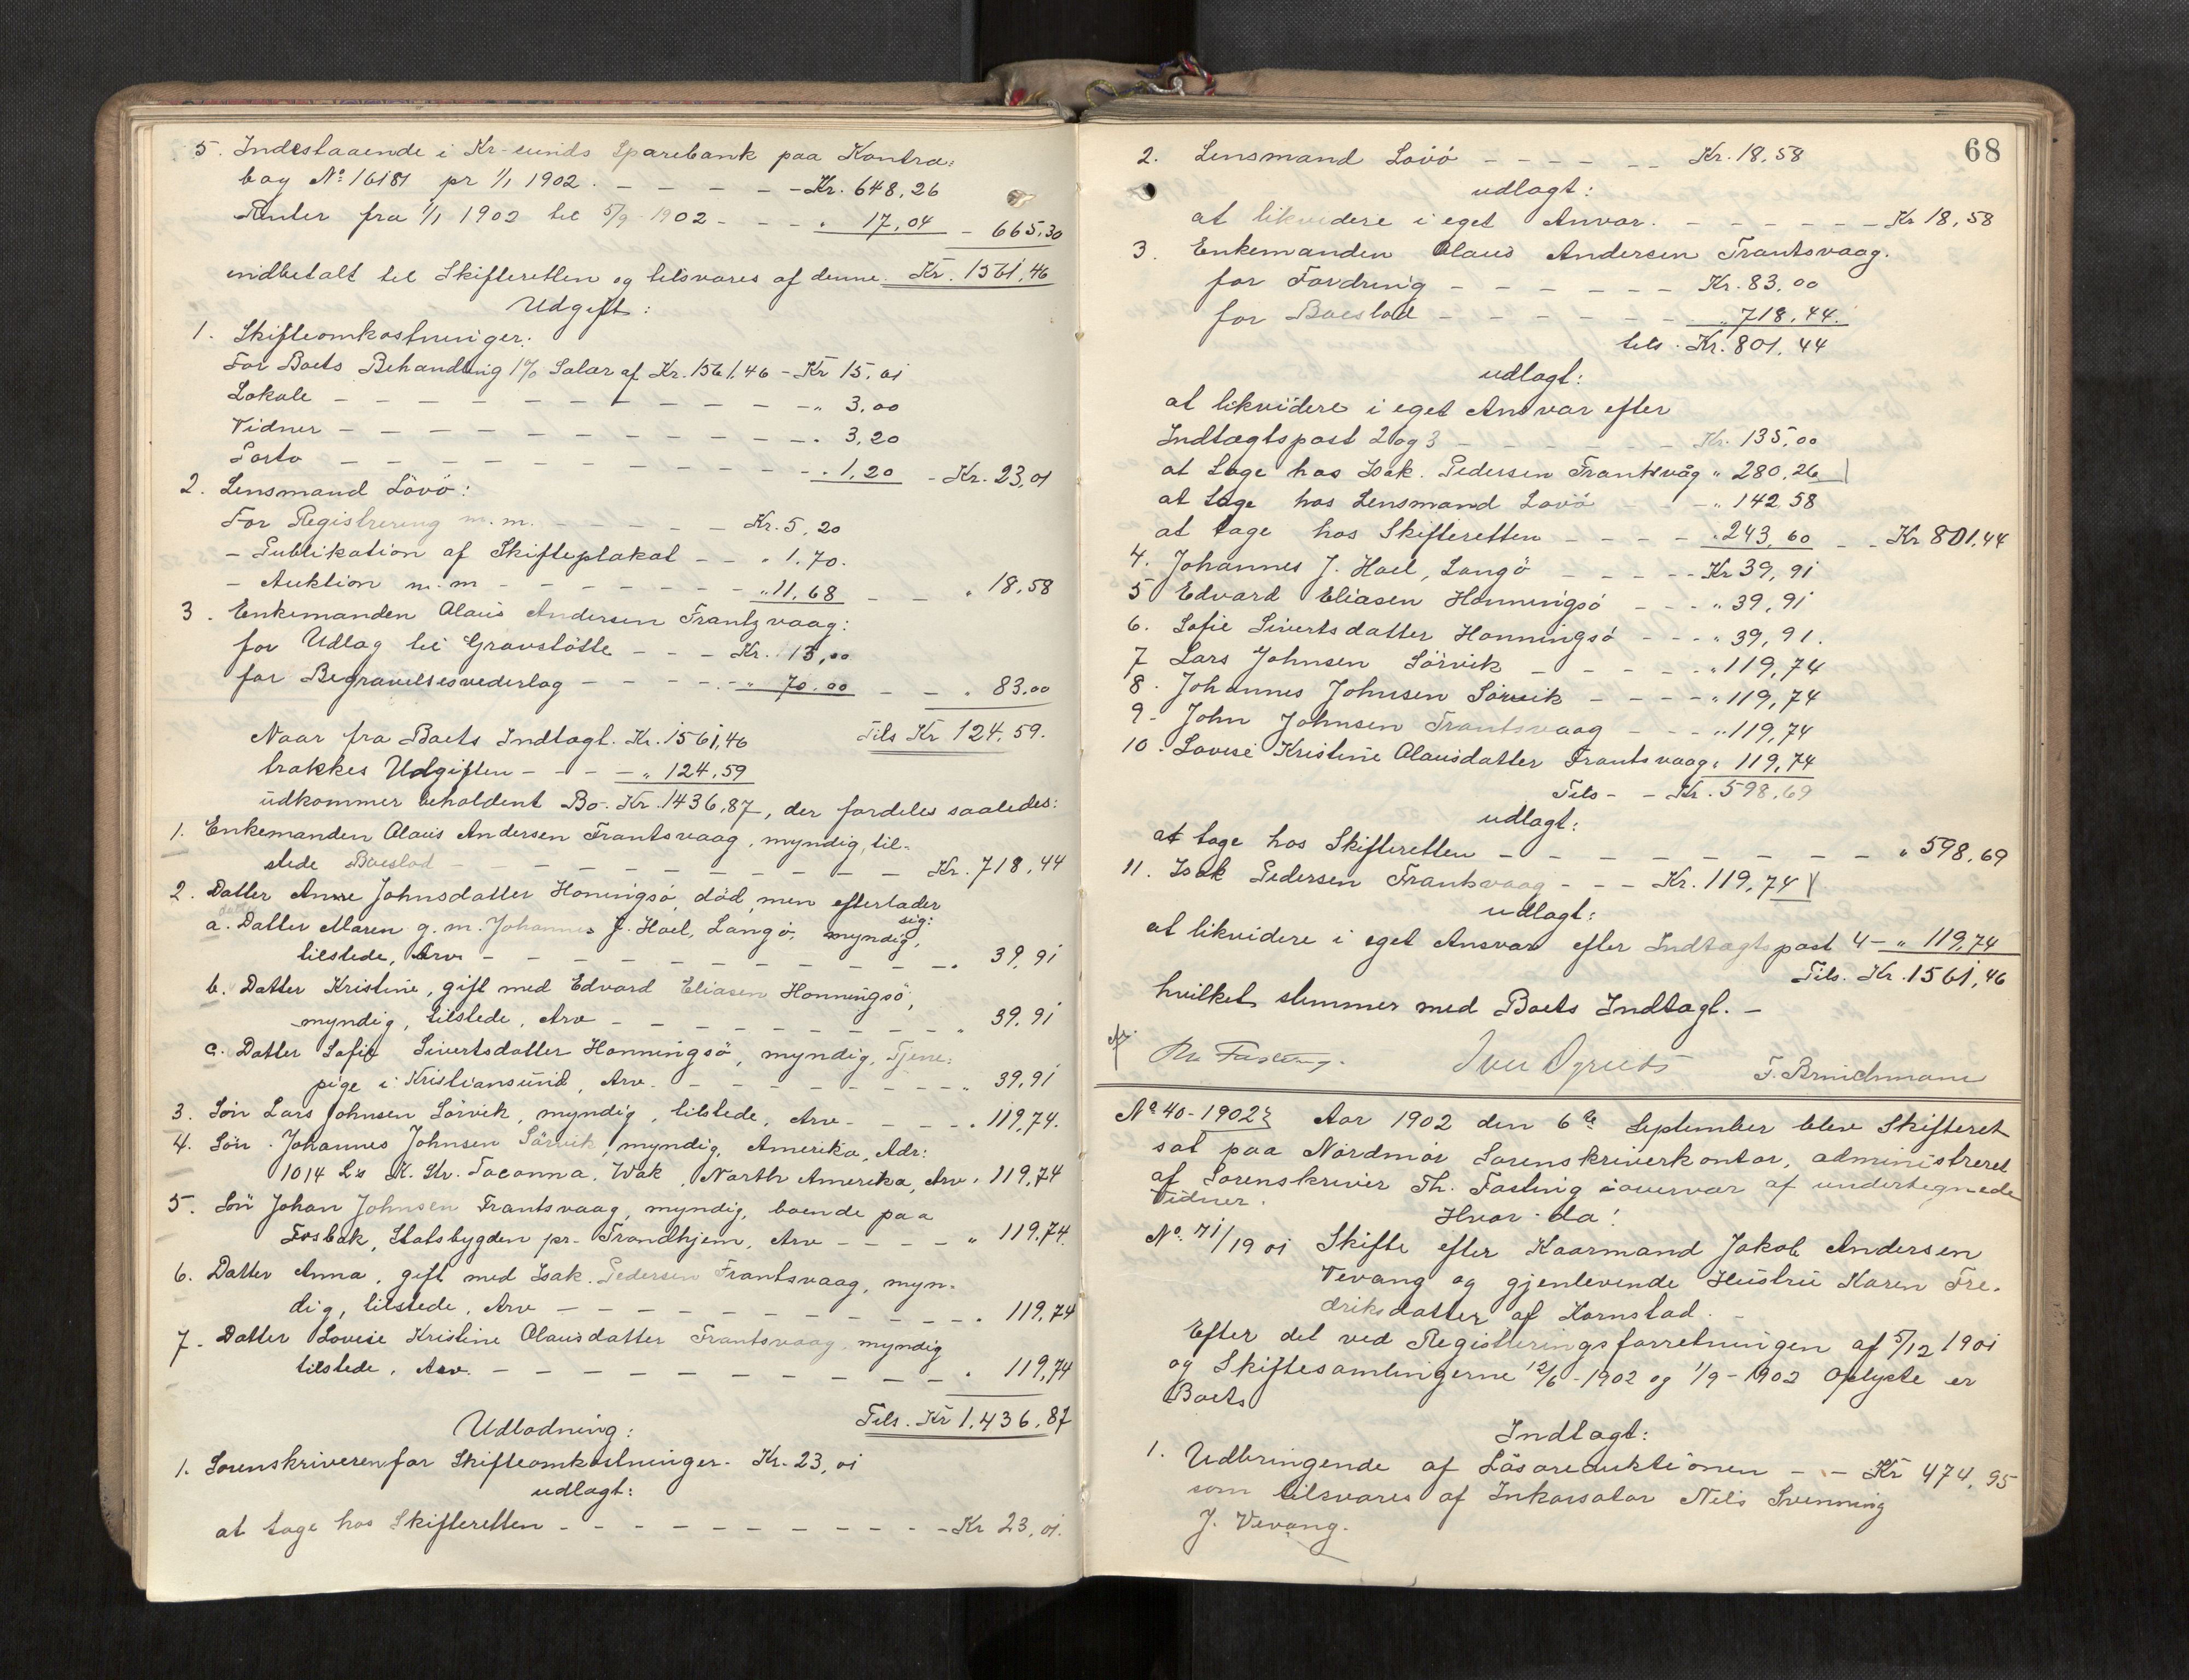 5. Indestaaende i Kr-sunds Sparebank paa Kontra=
bog No 16181 pr 1/1 1902. - - - - - Kr. 648,26
Renter fra 1/1 1902 til 5/9 1902 - - - „ 17,04 - 665,30
indbetalt til Skifteretten og tilsvares af denne. Kr. 1561,46
Udgift:
1. Skifteomkostninger:
For Boets Behandling 1% Salær af Kr. 1561,46 - Kr 15,61
Lokale - - - - - - - - - - - „ 3,00
Vidner - - - - - - - - - - - „ 3,20
Porto - - - - - - - - - - - „ 1,20 - Kr. 23,01
2. Lensmand Lövö:
For Registrering m.m. - - - - - Kr. 5,20
- Publikation af Skifteplakat - - „ 1.70.
- Auktion m.m - - - - - - „ 11,68 - - „ 18,58
3. Enkemanden Olaus Andersen Frantzvaag:
for Udlag til Gravstötte - - - Kr. 13,00
for Begravelsesvederlag - - - - - „ 70.00 - - „ 83.00
Tils Kr 124,59.
Naar fra Boets Indtægt. Kr. 1561,46
trækkes Udgiften - - - - „ 124,59
udkommer beholdent Bo. Kr. 1436,87, der fordeles saaledes:
1. Enkemanden Olaus Andersen Frantsvaag, myndig, til-
stede Boeslod - - - - - - - - - - Kr. 718,44
2. Datter Anne Johnsdatter Honningsö, död, men efterlader
sig:
a. Datter Maren g.m. Johannes J. Hoel, Langö, myndig,
tilstede, Arv - - - - - - - - - - - „ 39,91
b. Datter Kristine, gift med Edvard Eliasen Honningsö,
myndig, tilstede, Arv - - - - - - - - - „ 39,91
c. Datter Sofie Sivertsdatter Honningsö, myndig, Tjene=
pige i Kristiansund, Arv. - - - - - - - - - „ 39,91
3. Sön Lars Johnsen Sörvik, myndig, tilstede, Arv - - - - „ 119,74.
4. Sön Johannes Johnsen Sörvik, myndig, Amerika, Adr:
1014 Ls K. Str. Tacanna. Wak, North Amerika, Arv „ 119,74
5. Sön Johan Johnsen Frantsvaag, myndig, boende paa
Fosbak, Statsbygden pr. Trondhjem, Arv - - - - „ 119,74
6. Datter Anna, gift med Isak Pedersen Frantsvaag, myn-
dig, tilstede, Arv - - - - - - - - - - - „ 119,74
7. Datter Lovise Kristine Olausdatter Frantsvaag, myndig
tilstede, Arv. - - - - - - - - - - „ 119,74
Tils. Kr 1.436,87
Udlodning:
1. Sorenskriveren for Skifteomkostninger. Kr. 23,01
udlagt:
at tage hos Skifteretten - - - - - - - - - - - Kr 23,01.
68
2. Lensmand Lövö - - - - - - Kr. 18,58
udlagt:
at likvidere i eget Ansvar. - - - - - - Kr 18,58
3. Enkemanden Olaus Andersen Frantsvaag.
for Fordring - - - - - - Kr. 83,00
for Boeslod - - - - - - „ 718,44.
tils. Kr. 801,44
udlagt:
at likvidere i eget Ansvar efter
Indtægtspost 2 og 3 - - - - - - Kr. 135,00
at tage hos Isak Pedersen Frantsvåg „ 280,26
at tage hos Lensmand Lovö - - „ 142,58
at tage hos Skifteretten - - - - „ 243,60 - - Kr 801,44
4. Johannes J. Hoel, Langö - - - - - Kr 39,91
5 Edvard Eliasen Honningsö - - - „ 39,91
6. Sofie Sivertsdatter Honningsö - - - „ 39,91.
7 Lars Johnsen Sörvik - - - - - „ 119,74
8. Johannes Johnsen Sörvik - - - - „ 119,74
9- John Johnsen Frantsvaag - - - „ 119,74
10. Lovise Kristine Olausdatter Frantsvaag „ 119,74
Tils - - Kr. 598,69
udlagt:
at tage hos Skifteretten - - - - - - - - - „ 598,69
11. Isak Pedersen Frantsvaag - - - Kr. 119,74
udlagt:
at likvidere i eget Ansvar efter Indtægtspost 4 - „ 119,74
Tils. Kr. 1561,46
hvilket stemmer med Boets Indtægt. -
Th. Fasting. F. Brinchmann
No 40-1902 Aar 1902 den 6te September blev Skifteret
sat paa Nordmör Sorenskriverkontor, administreret
af Sorenskriver Th. Fasting i overvær af undertegnede
Vidner.
Hvor da!
No. 71/1901 Skifte efter Kaarmand Jakob Andersen
Vevang og gjenlevende Hustru Karen Fre-
driksdatter af Kornstad.
Efter det ved Registreringsforretningen af 5/12 1901
og Skiftesamlingerne 12/6 - 1902 og 1/9 - 1902 Oplyste er
Boets
Indtægt:
1. Udbringende af Lösöreauktionen - - Kr 474,95
som tilsvares af Inkassator Nils Svenning
J. Vevang.